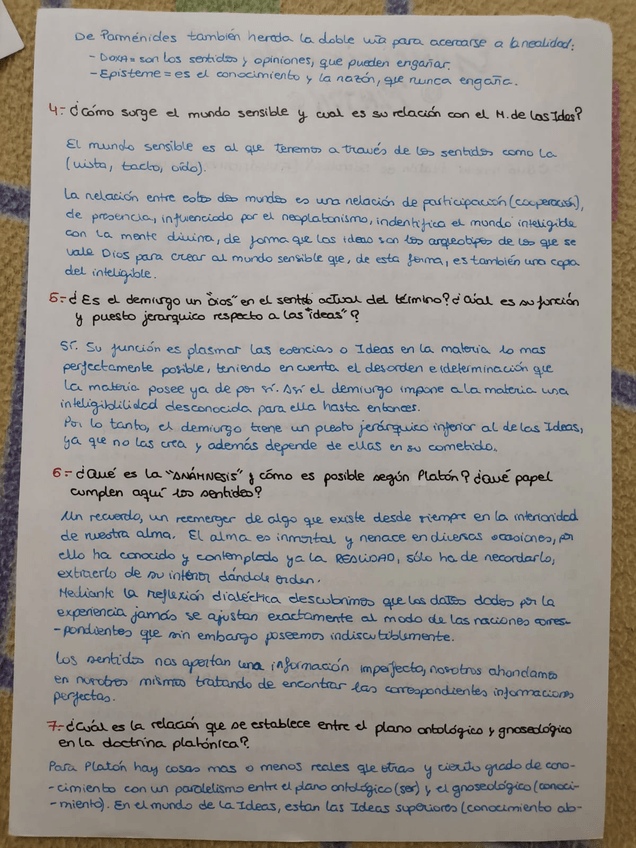 De Parménides también hereda la doble vía para acercarse a la realidad:
- Doxa = son los sentidos y opiniones, que pueden engañar.
- Episteme = es el conocimiento y la razón, que nunca engaña.
4.- ¿Cómo surge el mundo sensible y cual es su relación con el M. de las Ideas?
El mundo sensible es al que tenemos a través de los sentidos como la
(vista, tacto, oído).
La relación entre estos dos mundos es una relación de participación (cooperación),
de presencia, influenciado por el neoplatonismo, indentifica el mundo inteligible
con la mente divina, de forma que las ideas son los arqetipos de los que se
vale Dios para crear al mundo sensible que, de esta forma, es también una copia
del inteligible.
5.- ¿Es el demiurgo un "Dios" en el sentido actual del término? ¿Cúal es su función
y puesto jerarquico respecto a las "ideas"?
Sí. Su función es plasmar las esencias o Ideas en la materia lo mas
perfectamente posible, teniendo en cuenta el desorden e ideterminación que
la materia posee ya de por sí. Así el demiurgo impone a la materia una
inteligibilidad desconocida para ella hasta entonces.
Por lo tanto, el demiurgo tiene un puesto jerárquico inferior al de las Ideas,
ya que no las crea y además depende de ellas en su cometido.
6.- ¿Qué es la "ANÁMNESIS" y cómo es posible según Platón? ¿Qué papel
cumplen aquí los sentidos?
Un recuerdo, un reemerger de algo que existe desde siempre en la interioridad
de nuestra alma. El alma es inmortal y renace en diversas ocasiones, por
ello ha conocido y contemplado ya la REALIDAD, sólo ha de recordarlo,
extraerlo de su interior dándole orden.
Mediante la reflexión dialéctica descubrimos que los datos dados por la
experiencia jamás se ajustan exactamente al modo de las naciones corres-
-pondientes que sin embargo poseemos indiscutiblemente.
Los sentidos nos aportan una información imperfecta, nosotros ahondamos
en nosotros mismos tratando de encontrar las correspondientes informaciones
perfectas.
7.- ¿Cuál es la relación que se establece entre el plano ontológico y gnoseológico
en la doctrina platónica?
Para Platón hay cosas mas o menos reales que otras y cierto grado de cono-
-cimiento con un paralelismo entre el plano ontológico (ser) y el gnoseológico (conoci-
-miento). En el mundo de la Ideas, estan las Ideas superiores (conocimiento ab-